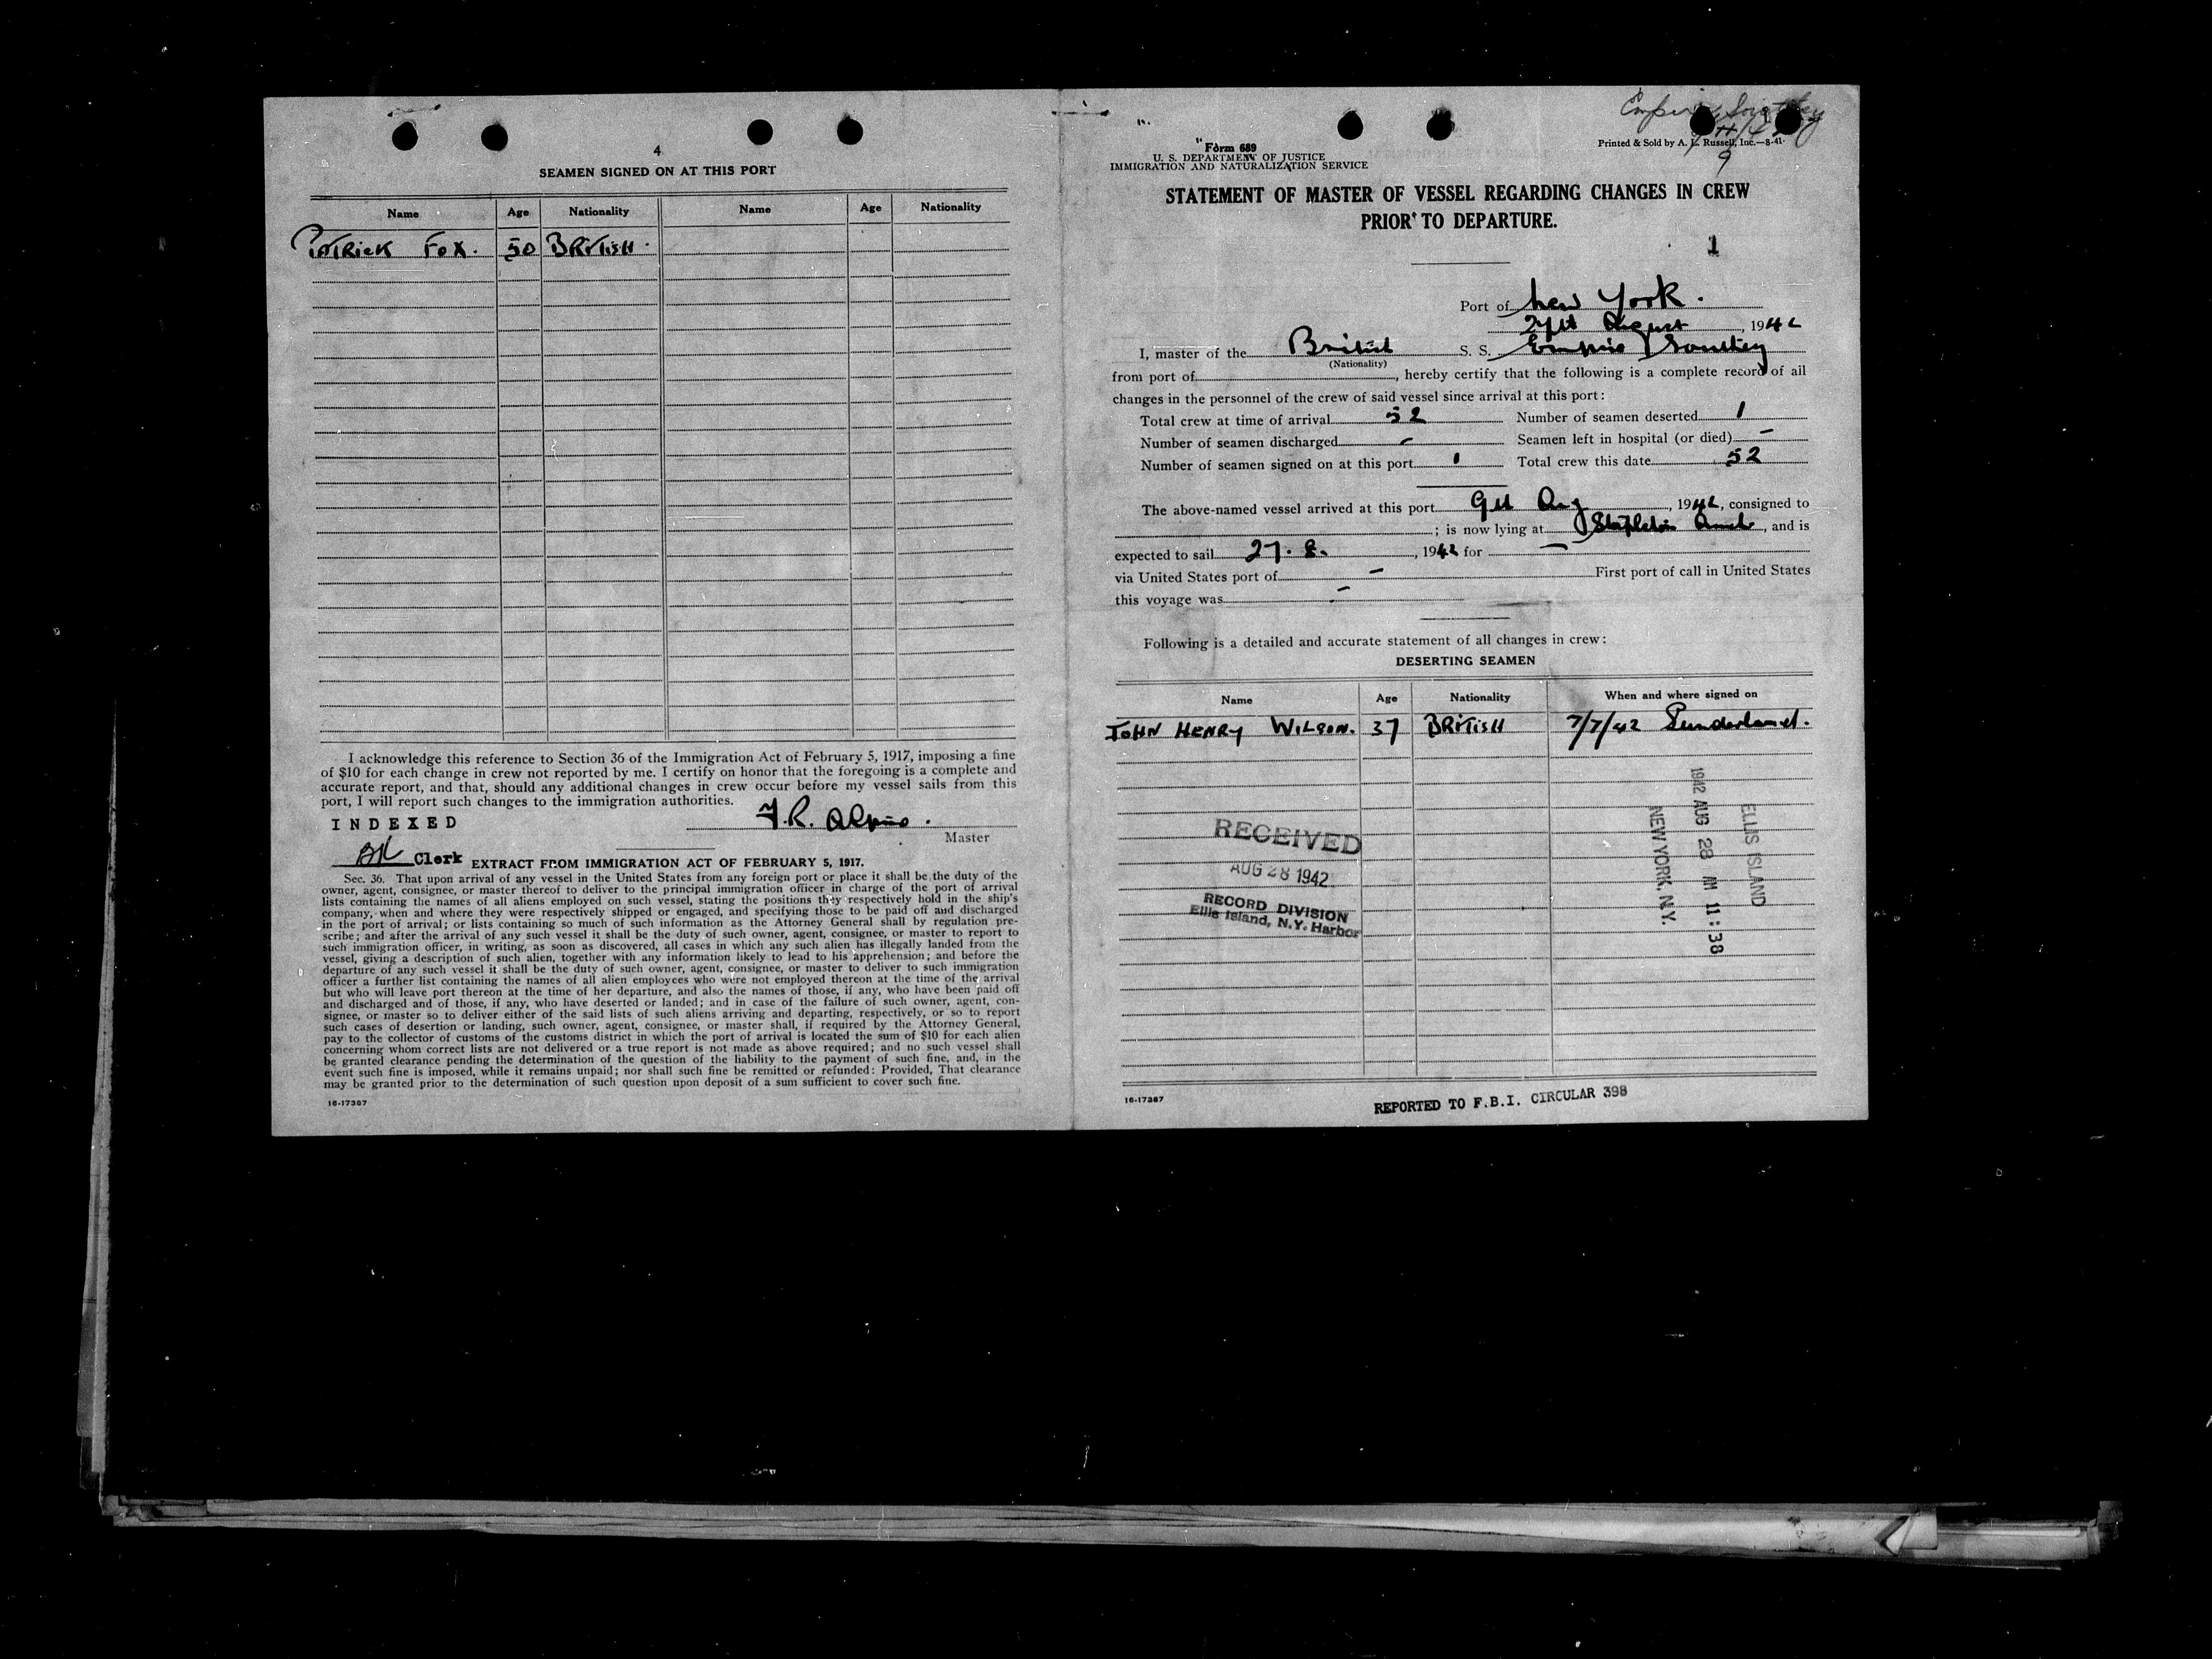 4
SEAMEN SIGNED ON AT THIS PORT
Name Age Nationality Name Age Nationality
PATRICK FOX. 50 BRITISH.
I acknowledge this reference to Section 36 of the Immigration Act of February 5, 1917, imposing a fine
of $10 for each change in crew not reported by me. I certify on honor that the foregoing is a complete and
accurate report, and that, should any additional changes in crew occur before my vessel sails from this
port, I will report such changes to the immigration authorities.
INDEXED
F.R.
Master
Clerk
EXTRACT FROM IMMIGRATION ACT OF FEBRUARY 5, 1917.
Sec. 36. That upon arrival of any vessel in the United States from any foreign port or place it shall be the duty of the
owner, agent, consignee, or master thereof to deliver to the principal immigration officer in charge of the port of arrival
lists containing the names of all aliens employed on such vessel, stating the positions they respectively hold in the ship's
company, when and where they were respectively shipped or engaged, and specifying those to be paid off and discharged
in the port of arrival; or lists containing so much of such information as the Attorney General shall by regulation pre-
scribe; and after the arrival of any such vessel it shall be the duty of such owner, agent, consignee, or master to report to
such immigration officer, in writing, as soon as discovered, all cases in which any such alien has illegally landed from the
vessel, giving a description of such alien, together with any information likely to lead to his apprehension; and before the
departure of any such vessel it shall be the duty of such owner, agent, consignee, or master to deliver to such immigration
officer a further list containing the names of all alien employees who were not employed thereon at the time of the arrival
but who will leave port thereon at the time of her departure, and also the names of those, if any, who have been paid off
and discharged and of those, if any, who have deserted or landed; and in case of the failure of such owner, agent, con-
signee, or master so to deliver either of the said lists of such aliens arriving and departing, respectively, or so to report
such cases of desertion or landing, such owner, agent, consignee, or master shall, if required by the Attorney General,
pay to the collector of customs of the customs district in which the port of arrival is located the sum of $10 for each alien
concerning whom correct lists are not delivered or a true report is not made as above required; and no such vessel shall
be granted clearance pending the determination of the question of the liability to the payment of such fine, and, in the
event such fine is imposed, while it remains unpaid; nor shall such fine be remitted or refunded: Provided, That clearance
may be granted prior to the determination of such question upon deposit of a sum sufficient to cover such fine.
16-17387
Empire
Form 689
U. S. DEPARTMENT OF JUSTICE
IMMIGRATION AND NATURALIZATION SERVICE
Printed & Sold by A. L. Russell, Inc.—8-41.
9
STATEMENT OF MASTER OF VESSEL REGARDING CHANGES IN CREW
PRIOR TO DEPARTURE.
1
Port of New York.
August, 1942
I, master of the British S. S. Empire
(Nationality)
from port of, hereby certify that the following is a complete record of all
changes in the personnel of the crew of said vessel since arrival at this port:
Total crew at time of arrival 52 Number of seamen deserted 1
Number of seamen discharged - Seamen left in hospital (or died) -
Number of seamen signed on at this port 1 Total crew this date 52
The above-named vessel arrived at this port 9th Aug, 1942, consigned to
; is now lying at Stapleton Anch, and is
expected to sail 27. 8., 1942 for —
via United States port of - First port of call in United States
this voyage was -
Following is a detailed and accurate statement of all changes in crew:
DESERTING SEAMEN
Name Age Nationality When and where signed on
JOHN HENRY WILSON. 37 BRITISH 7/7/42 Sunderland.
RECEIVED
AUG 28 1942
RECORD DIVISION
Ellis Island, N.Y. Harbor
ELLIS ISLAND
1942 AUG 28 AM 11:38
NEW YORK, N.Y.
16-17387
REPORTED TO F.B.I. CIRCULAR 398